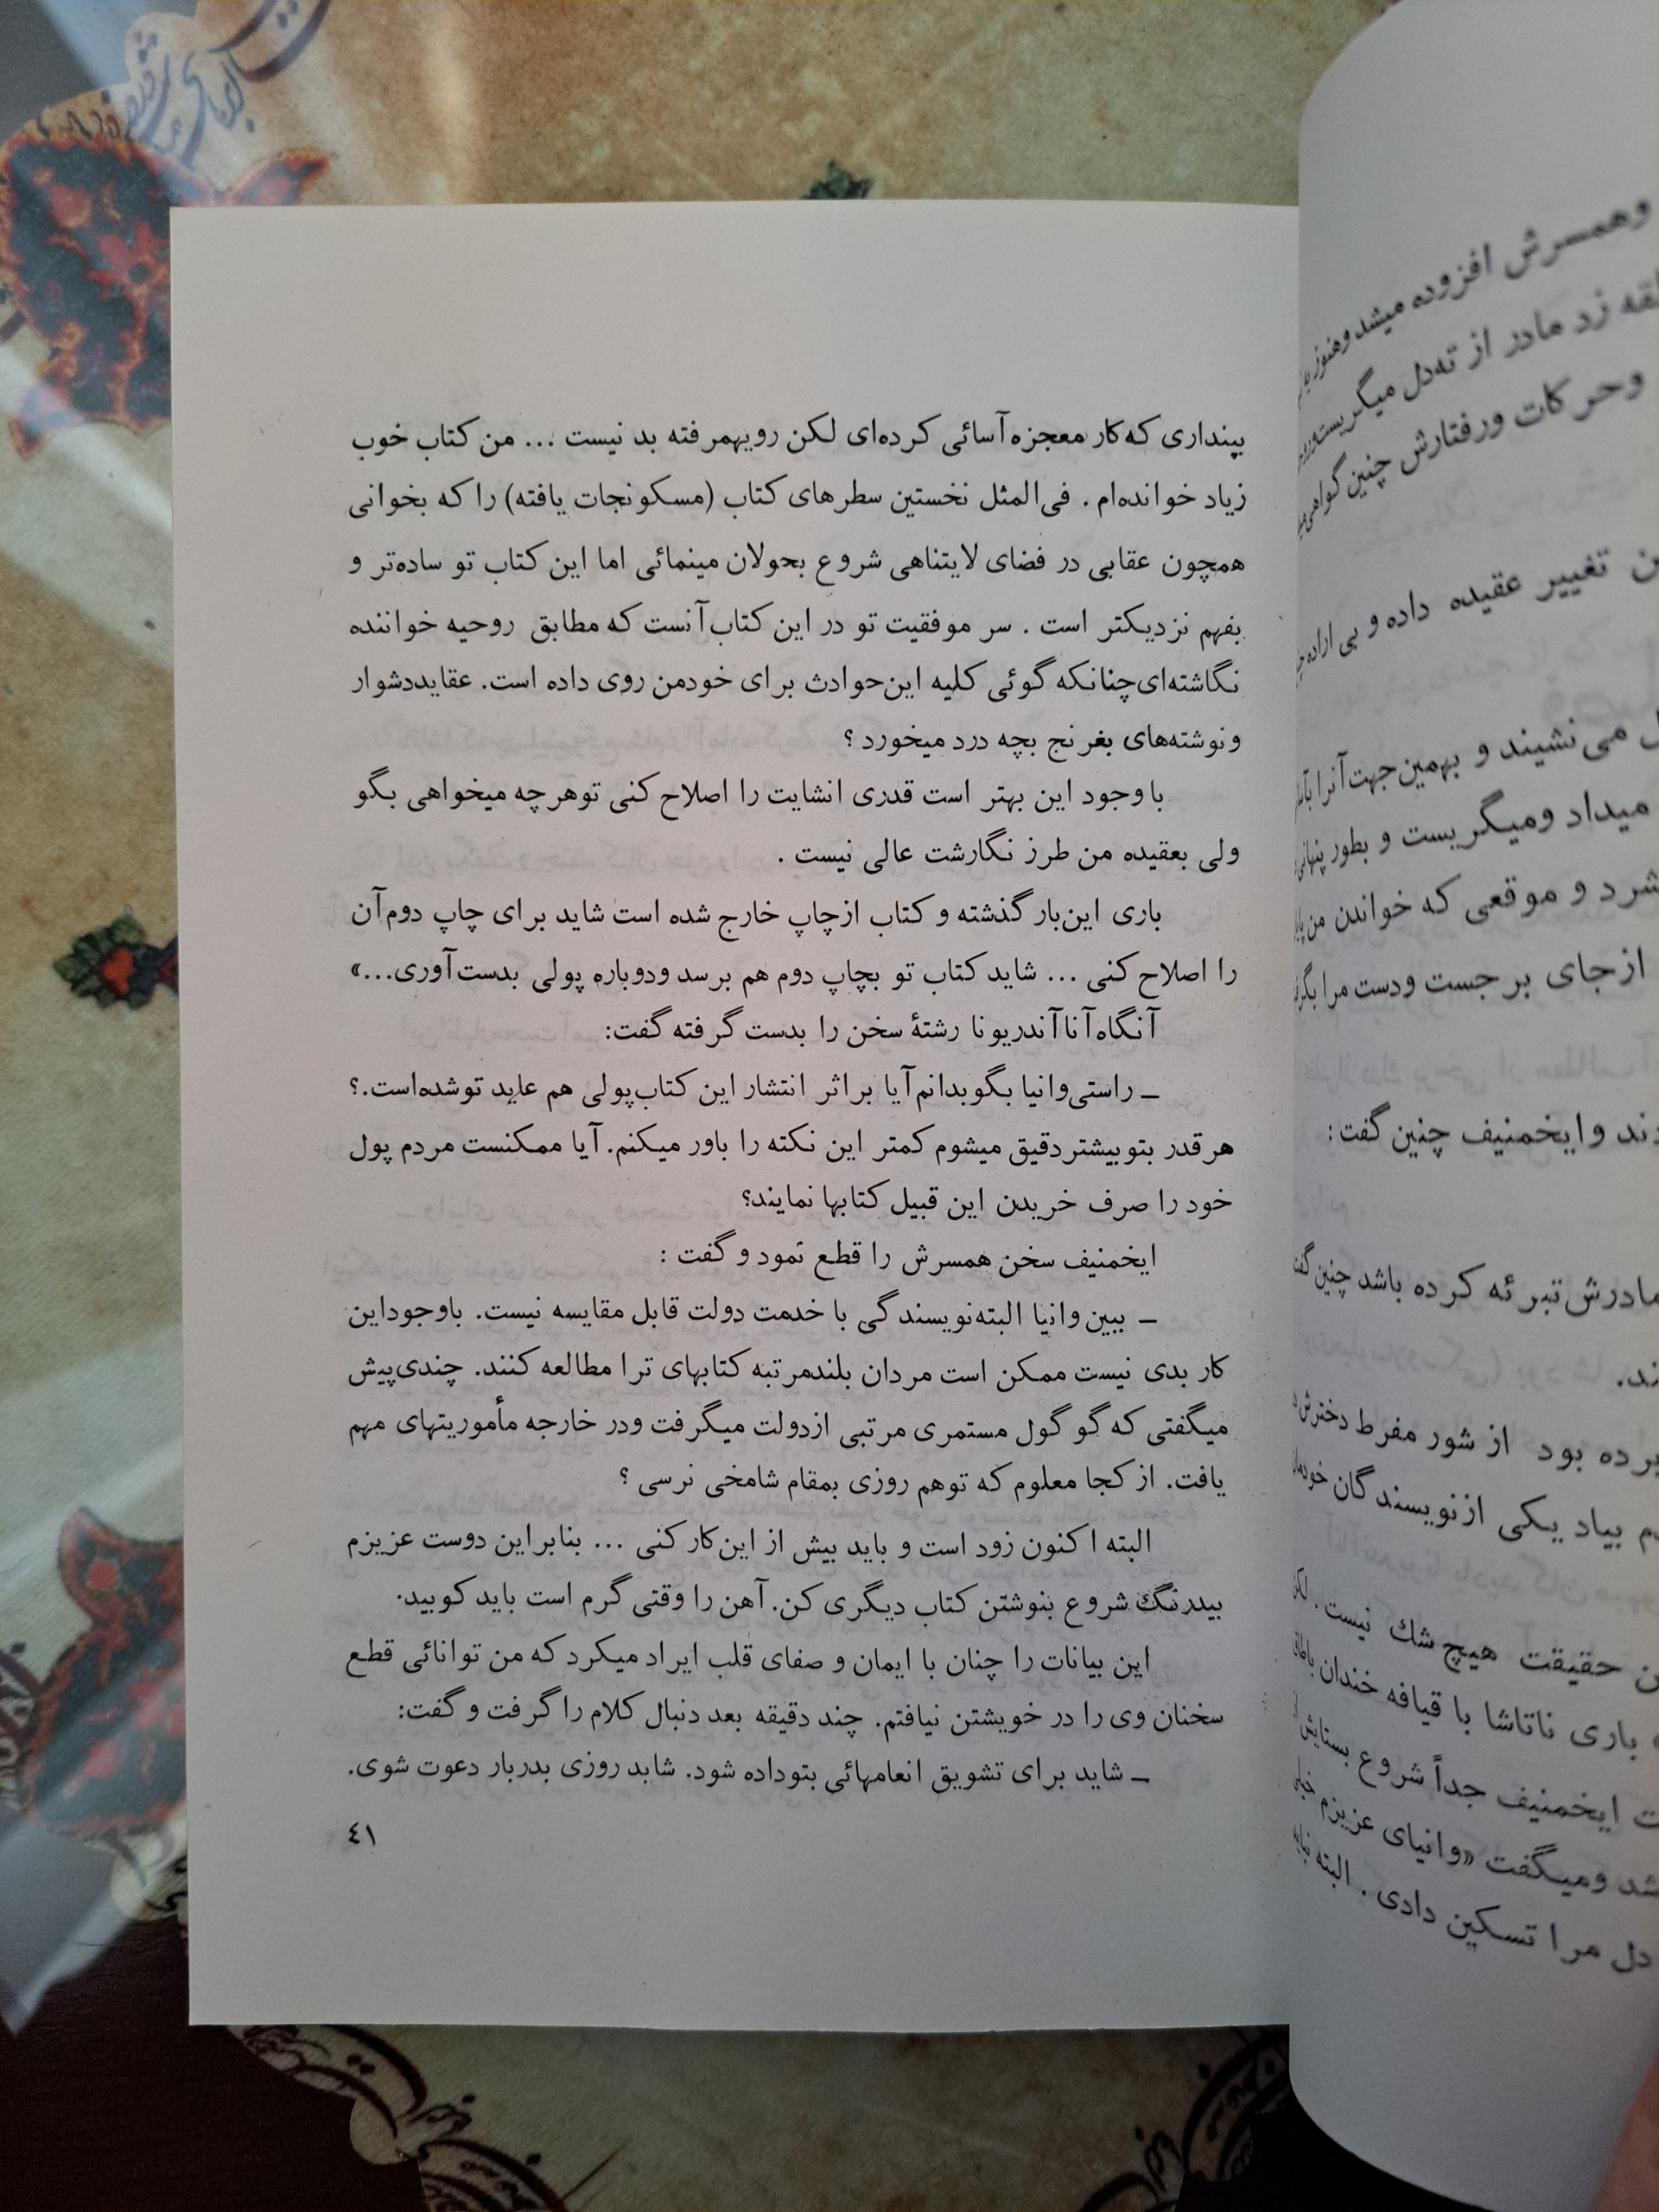 بپنداری که کار معجزه آسائی کرده‌ای لکن رویهمرفته بد نیست ... من کتاب خوب
زیاد خوانده‌ام . فی‌المثل نخستین سطرهای کتاب (مسکو نجات یافته) را که بخوانی
همچون عقابی در فضای لایتناهی شروع بجولان مینمائی اما این کتاب تو ساده‌تر و
بفهم نزدیکتر است . سر موفقیت تو در این کتاب آنست که مطابق روحیه خواننده
نگاشته‌ای چنانکه گوئی کلیه این حوادث برای خود من روی داده است. عقاید دشوار
و نوشته‌های بغرنج بچه درد میخورد ؟
با وجود این بهتر است قدری انشایت را اصلاح کنی تو هرچه میخواهی بگو
ولی بعقیده من طرز نگارشت عالی نیست .
باری این بار گذشته و کتاب از چاپ خارج شده است شاید برای چاپ دوم آن
را اصلاح کنی ... شاید کتاب تو بچاپ دوم هم برسد و دوباره پولی بدست آوری...»
آنگاه آنا آندریونا رشتهٔ سخن را بدست گرفته گفت:
ـ راستی وانیا بگو بدانم آیا بر اثر انتشار این کتاب پولی هم عاید تو شده است.؟
هر قدر بتو بیشتر دقیق میشوم کمتر این نکته را باور میکنم. آیا ممکنست مردم پول
خود را صرف خریدن این قبیل کتابها نمایند؟
ایخمنیف سخن همسرش را قطع نمود و گفت :
ـ ببین وانیا البته نویسندگی با خدمت دولت قابل مقایسه نیست. با وجود این
کار بدی نیست ممکن است مردان بلندمرتبه کتابهای ترا مطالعه کنند. چندی پیش
میگفتی که گوگول مستمری مرتبی از دولت میگرفت و در خارجه مأموریتهای مهم
یافت. از کجا معلوم که تو هم روزی بمقام شامخی نرسی ؟
البته اکنون زود است و باید بیش از این کار کنی ... بنابراین دوست عزیزم
بیدرنگ شروع بنوشتن کتاب دیگری کن. آهن را وقتی گرم است باید کوبید.
این بیانات را چنان با ایمان و صفای قلب ایراد میکرد که من توانائی قطع
سخنان وی را در خویشتن نیافتم. چند دقیقه بعد دنبال کلام را گرفت و گفت:
ـ شاید برای تشویق انعامهائی بتو داده شود. شاید روزی بدربار دعوت شوی.
٤١
وهمسرش افزوده میشد و هنوز
زد مادر از ته دل میگریست
وحرکات ورفتارش چنین گواهی
تغییر عقیده داده و بی اراده
می نشیند و بهمین جهت آنرا
میداد ومیگریست و بطور پنهانی
و موقعی که خواندن من
از جای برجست ودست مرا
وایخمنیف چنین گفت:
مادرش تبرئه کرده باشد چنین
برده بود از شور مفرط دخترش
بیاد یکی از نویسندگان
حقیقت هیچ شك نیست .
باری ناتاشا با قیافه خندان
ایخمنیف جداً شروع بستایش
ومیگفت «وانیای عزیزم
دل مرا تسکین دادی . البته